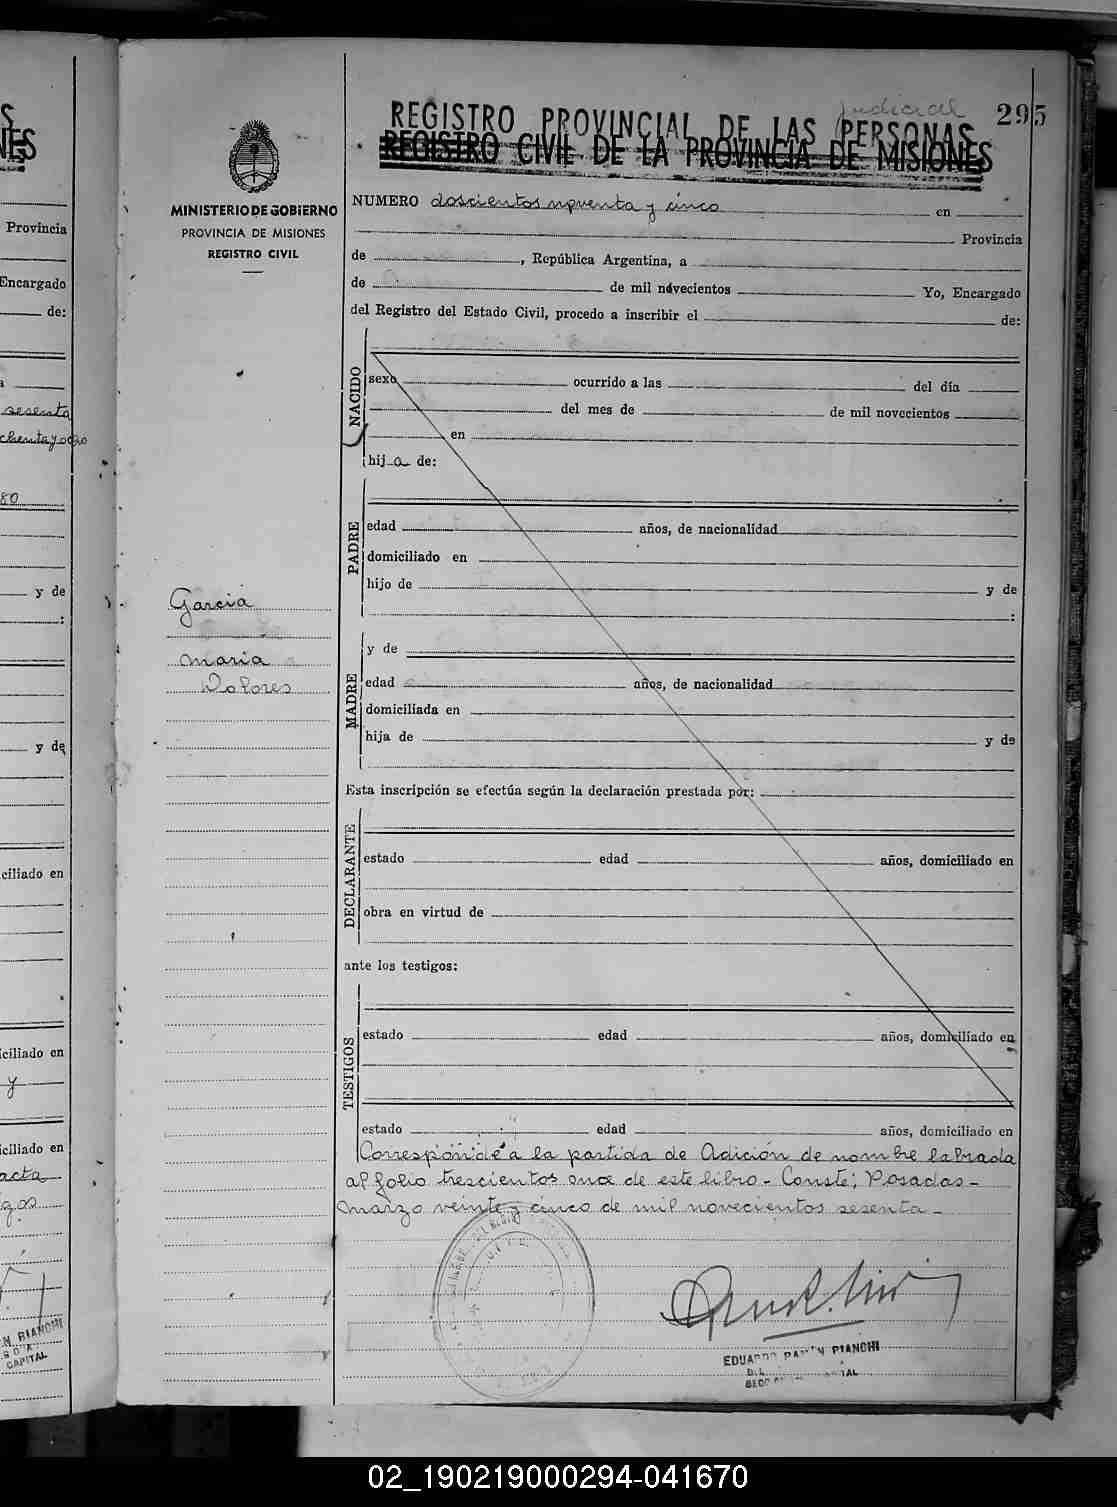 judicial
295
REGISTRO PROVINCIAL DE LAS PERSONAS
REGISTRO CIVIL DE LA PROVINCIA DE MISIONES
MINISTERIO DE GOBIERNO
PROVINCIA DE MISIONES
REGISTRO CIVIL
NUMERO doscientos noventa y cinco en
Provincia
de , República Argentina, a
de de mil novecientos Yo, Encargado
del Registro del Estado Civil, procedo a inscribir el de:
NACIDO
sexo ocurrido a las del día
del mes de de mil novecientos
en
hija de:
PADRE
edad años, de nacionalidad
domiciliado en
hijo de y de
:
Garcia
Maria
Dolores
MADRE
y de
edad años, de nacionalidad
domiciliada en
hija de y de
Esta inscripción se efectúa según la declaración prestada por:
DECLARANTE
estado edad años, domiciliado en
obra en virtud de
ante los testigos:
TESTIGOS
estado edad años, domiciliado en
estado edad años, domiciliado en
Corresponde a la partida de Adición de nombre labrada
al folio trescientos once de este libro - Conste; Posadas -
Marzo veinte y cinco de mil novecientos sesenta -
EDUARDO RAMON BIANCHI
Provincia
Encargado
de:
sesenta
80
y de
:
y de
ciliado en
ciliado en
y
ciliado en
acta
BIANCHI
CAPITAL
02_190219000294-041670